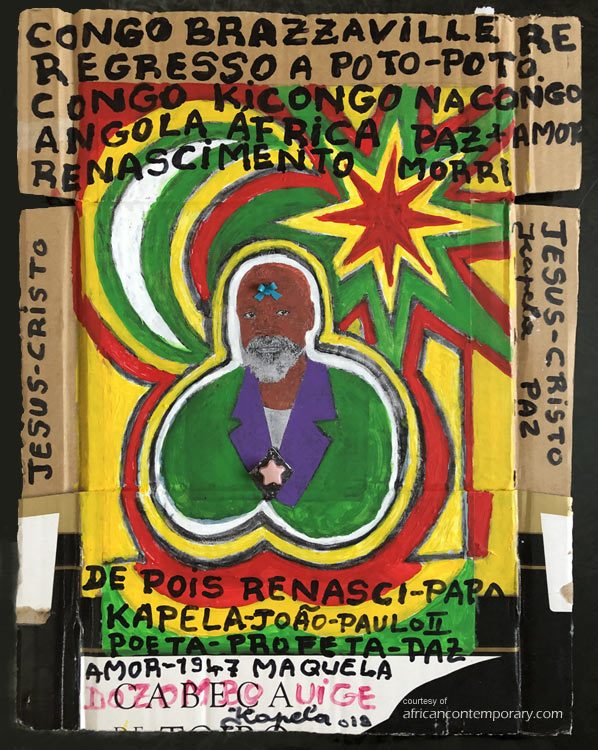 CONGO BRAZZAVILLE RE
REGRESSO A POTO-POTO
CONGO KICONGO NACONGO
ANGOLA ÁFRICA PAZ+AMOR
RENASCIMENTO MORRI
JESUS-CRISTO
JESUS-CRISTO
Kapela PAZ
DE POIS RENASCI-PAPA
KAPELA-JOÃO-PAULO II
POETA-PROFETA-PAZ
AMOR-1947 MAQUELA
DO ZOMBO UIGE
CABEÇA
Kapela 018
courtesy of
africancontemporary.com